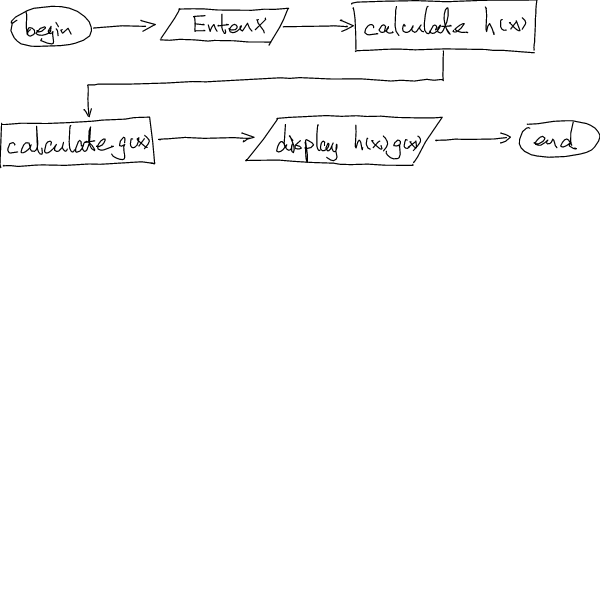 begin
Enter x
calculate h(x)
calculate g(x)
display h(x),g(x)
end